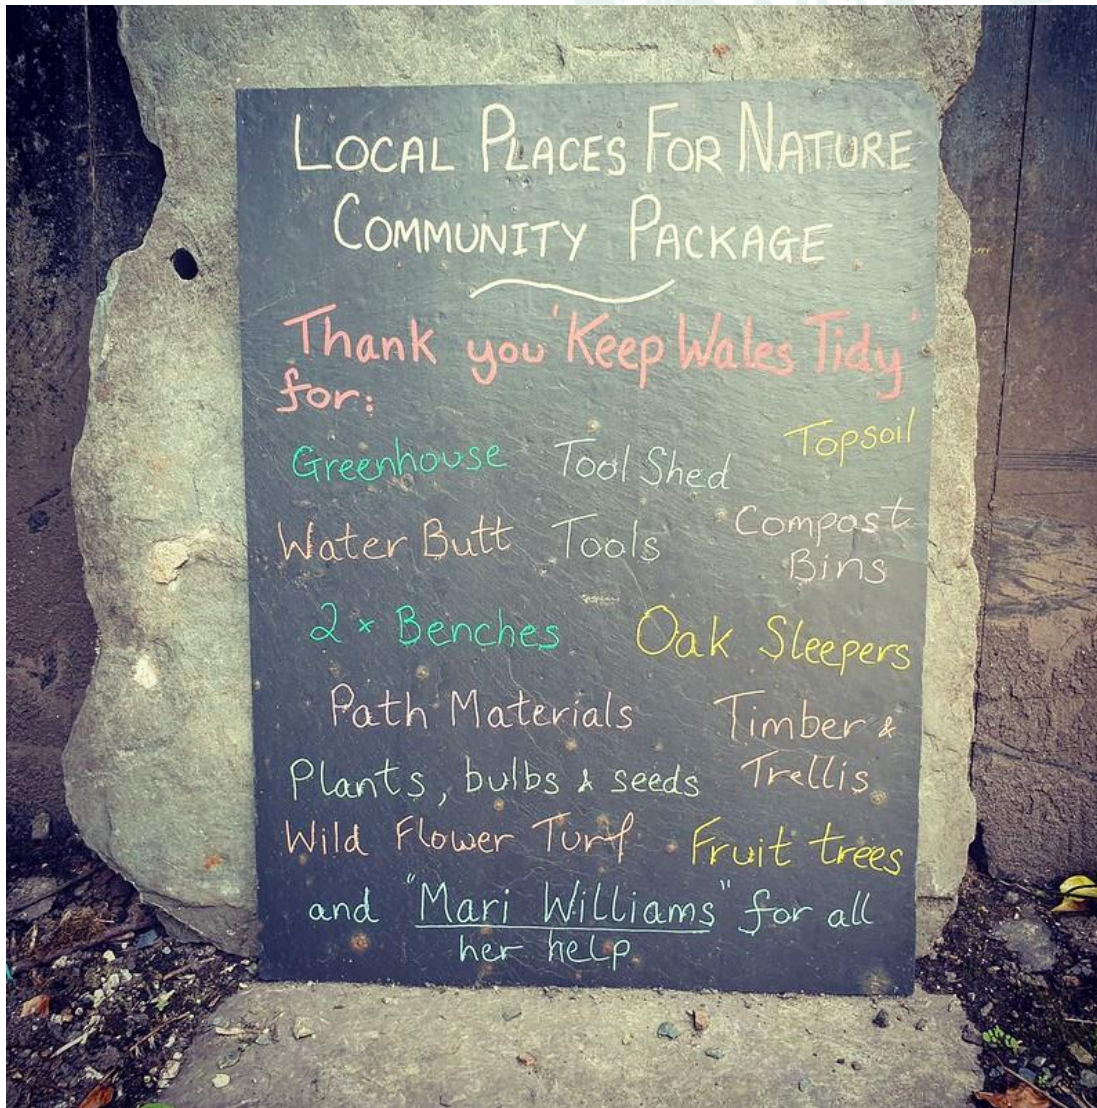 LOCAL PLACES FOR NATURE
COMMUNITY PACKAGE
Thank you 'Keep Wales Tidy'
for:
Greenhouse Tool Shed Topsoil
Water Butt Tools Compost
Bins
2 x Benches Oak Sleepers
Path Materials Timber &
Plants, bulbs & seeds Trellis
Wild Flower Turf Fruit trees
and "Mari Williams" for all
her help